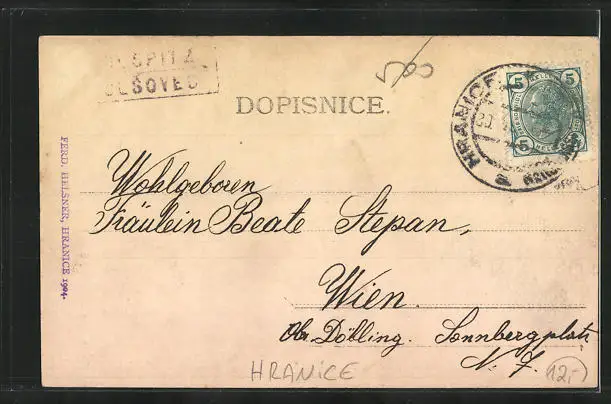 5
5
5
5
HRANICE
DOPISNICE.
FERD. HELSNER, HRANICE 1904.
Wohlgeboren
Fräulein Beate Stepan,
Wien.
Ob. Döbling. Sonnbergplatz
N. 7.
HRANICE
12,-